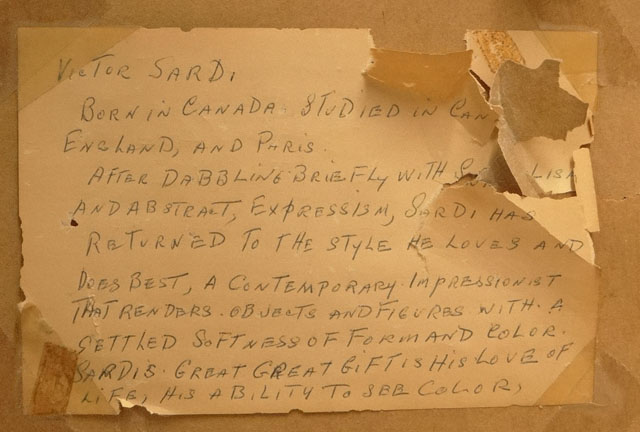 VICTOR SARDI
BORN IN CANADA. STUDIED IN CAN
ENGLAND, AND PARIS.
AFTER DABBLING BRIEFLY WITH
AND ABSTRACT, EXPRESSISM, SARDI HAS
RETURNED TO THE STYLE HE LOVES AND
DOES BEST, A CONTEMPORARY IMPRESSIONIST
THAT RENDERS OBJECTS AND FIGURES WITH A
SETTLED SOFTNESS OF FORM AND COLOR.
SARDIS GREAT GREAT GIFT IS HIS LOVE OF
LIFE, HIS ABILITY TO SEE COLOR,